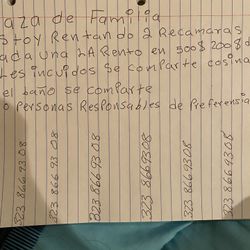 aza de Familia
stoy Rentando 2 Recamaras
ada una LA Rento en 500$ 200$ d
Les incuidos se comparte cosina
el baño se comparte
o personas Responsables de Preferensia
323 866 93 08
323 866 93 08
323 866 9308
323 866 9308
323 866 9308
323 866 9308